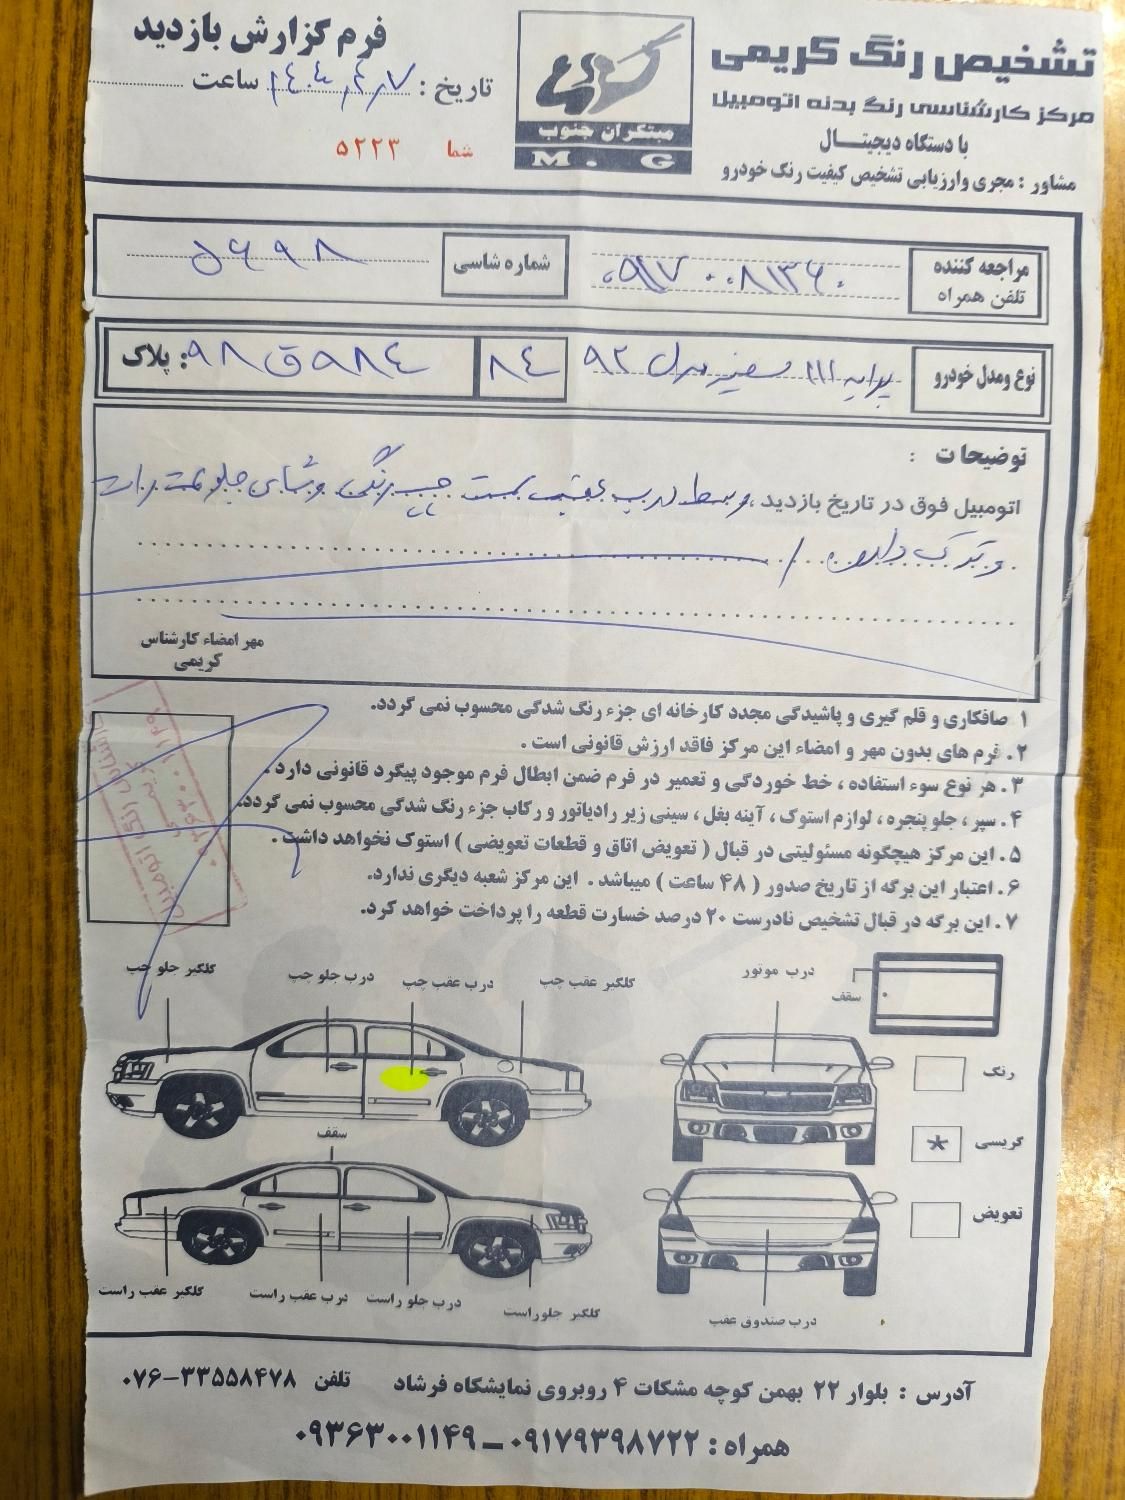 تشخیص رنگ کریمی
مرکز کارشناسی رنگ بدنه اتومبیل
با دستگاه دیجیتال
مشاور : مجری وارزیابی تشخیص کیفیت رنگ خودرو
مبتکران جنوب
M. G
فرم گزارش بازدید
تاریخ : ساعت
شما ۵۲۲۳
مراجعه کننده
تلفن همراه
۰۹۱۷۰۰۸۱۳۶۰
شماره شاسی
۵۶۹۸
نوع ومدل خودرو
پراید ۱۱۱ سفید مدل ۹۲
۸۴
پلاک: ۹۸ ق ۹۸۴
توضیحات :
اتومبیل فوق در تاریخ بازدید، وسط درب عقب سمت چپ رنگ جلو
مهر امضاء کارشناس
کریمی
۱ صافکاری و قلم گیری و پاشیدگی مجدد کارخانه ای جزء رنگ شدگی محسوب نمی گردد.
۲. فرم های بدون مهر و امضاء این مرکز فاقد ارزش قانونی است .
۳. هر نوع سوء استفاده ، خط خوردگی و تعمیر در فرم ضمن ابطال فرم موجود پیگرد قانونی دارد .
۴. سپر ، جلو پنجره ، لوازم استوک ، آینه بغل ، سینی زیر رادیاتور و رکاب جزء رنگ شدگی محسوب نمی گردد.
۵. این مرکز هیچگونه مسئولیتی در قبال ( تعویض اتاق و قطعات تعویضی ) استوک نخواهد داشت .
۶. اعتبار این برگه از تاریخ صدور ( ۴۸ ساعت ) میباشد . این مرکز شعبه دیگری ندارد.
۷. این برگه در قبال تشخیص نادرست ۲۰ درصد خسارت قطعه را پرداخت خواهد کرد.
گلگیر جلو چپ
درب جلو چپ
درب عقب چپ
گلگیر عقب چپ
درب موتور
سقف
رنگ
گریسی
*
تعویض
سقف
گلگیر عقب راست
درب عقب راست
درب جلو راست
گلگیر جلوراست
درب صندوق عقب
آدرس : بلوار ۲۲ بهمن کوچه مشکات ۴ روبروی نمایشگاه فرشاد تلفن ۳۳۵۵۸۴۷۸-۰۷۶
همراه : ۰۹۱۷۹۳۹۸۷۲۲ - ۰۹۳۶۳۰۰۱۱۴۹